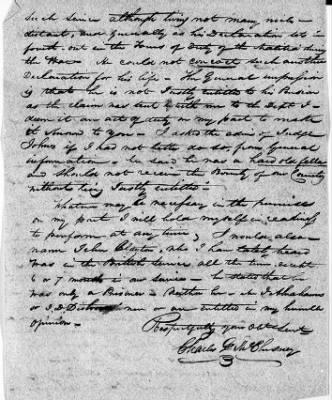 such service although living not many miles
distant, and generally as his Declaration sets
forth. out in the Tours of duty of the Militia during
the War — He could not concoct such another
Declaration for his life — The General impression
is that he is not Justly entitled to his Pension
as the claim was sent by me to the Dept. I
deem it an act of duty on my part to make
it known to you — I asked the advice of Judge
Johns if I had not better do so, from General
information. he said he was a hard old fellow
and should not receive the Bounty of our Country
without being Justly entitled —
Whatever may be necessary in the premises
on my part I will hold myself in readiness
to perform at any time, I would also
name John Clayton, who I have heard
was in the British service all the time except
6 or 7 months in our service — he states that he
was only a — Neither he — Abrahams
or I. D. are entitled in my humble
opinion —
Respectfully your Obt Servt
Charles G. McChesney